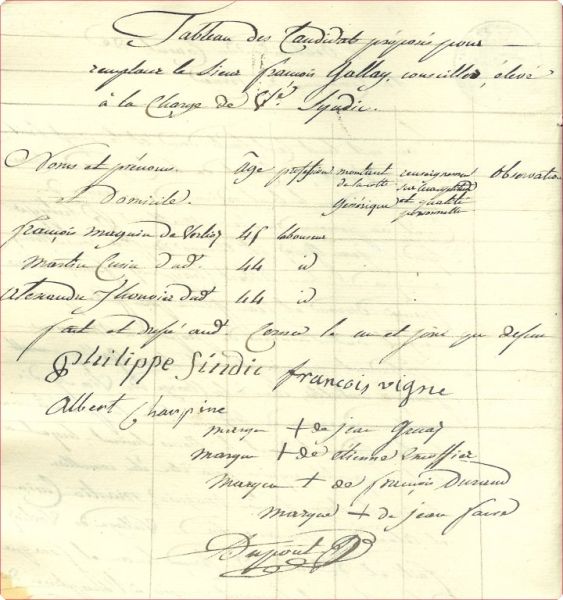 Tableau des Candidats proposés pour
remplacer le Sieur françois Gallay, conseiller, élevé
à la Charge de Vé. Syndic.
Noms et prénoms. âge profession montant renseignemens Observation
et Domicile. de la cotte sur
Générique et qualité
personnelle
françois magnin de 45 laboureur
martin Cusin d'ad. 44 id
alexandre d'ad 44 id
fait et dressé aud Cernex le an et jour que dessus
Philippe Sindic françois vigne
Albert Charpine
marque + de jean
marque + de étienne
marque + de françois Durand
marque + de jean favre
Dupont